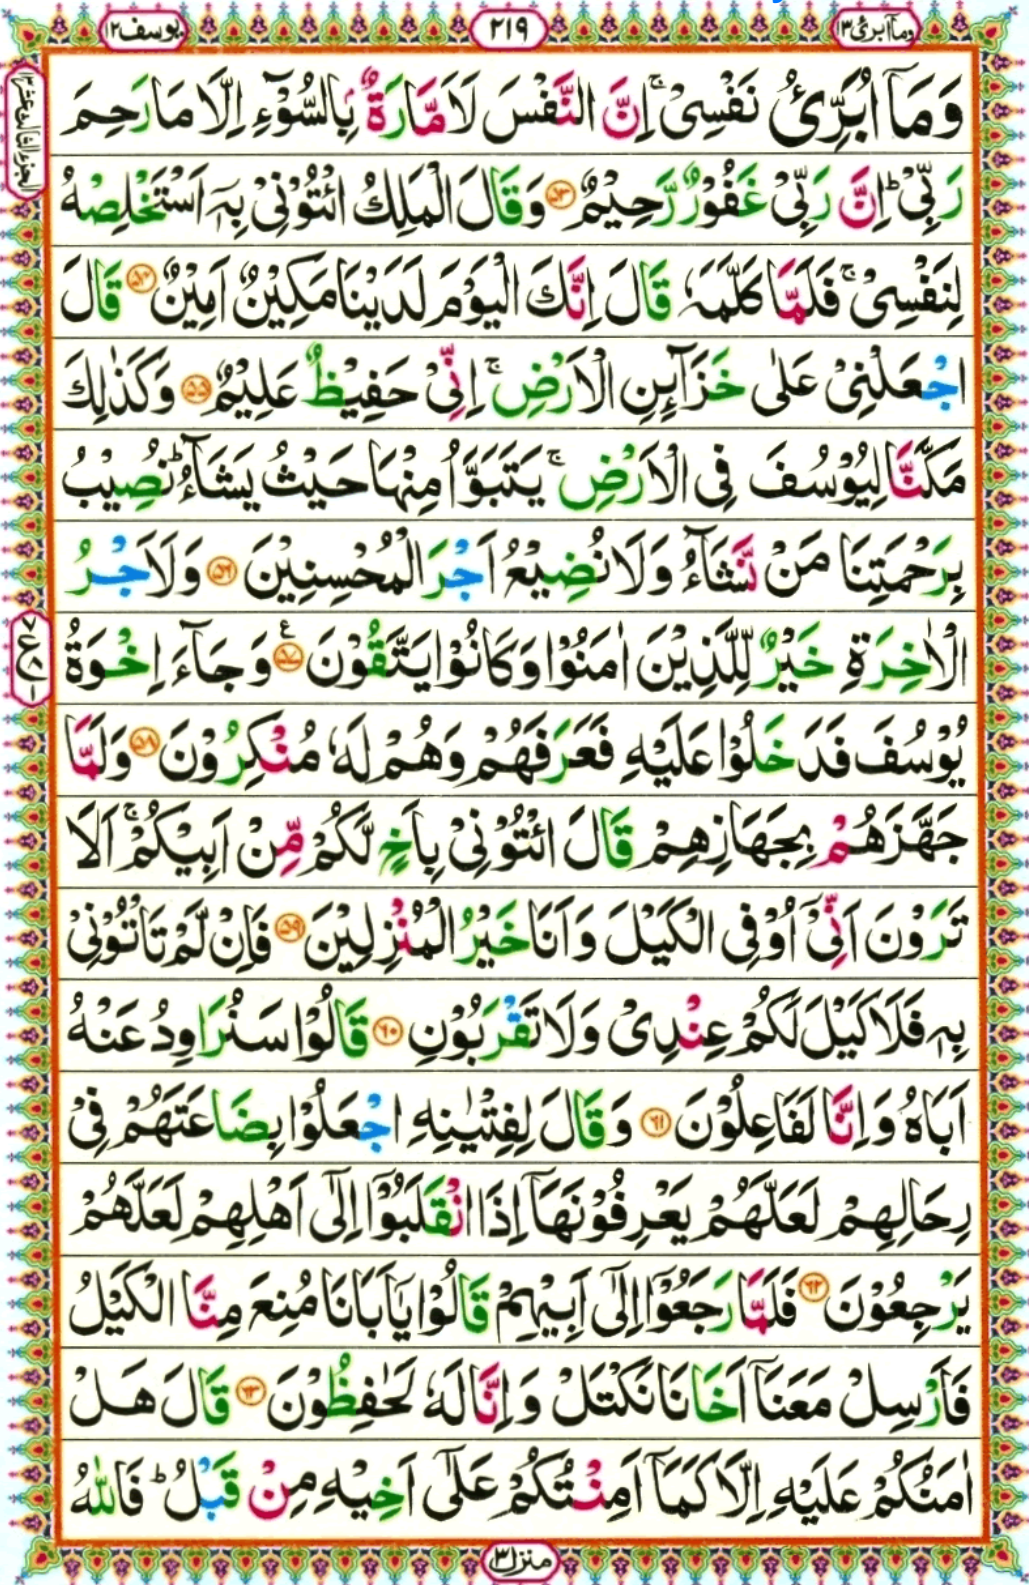 وما ابرئ ١٣
٢١٩
يوسف ١٢
وَمَآ اُبَرِّئُ نَفْسِىْ ۚ اِنَّ النَّفْسَ لَاَمَّارَةٌۢ بِالسُّوْٓءِ اِلَّا مَا رَحِمَ
رَبِّىْ ؕ اِنَّ رَبِّىْ غَفُوْرٌ رَّحِيْمٌ ۝۵۳ وَقَالَ الْمَلِكُ ائْتُوْنِىْ بِهٖۤ اَسْتَخْلِصْهُ
لِنَفْسِىْ ۚ فَلَمَّا كَلَّمَهٗ قَالَ اِنَّكَ الْيَوْمَ لَدَيْنَا مَكِيْنٌ اَمِيْنٌ ۝۵۴ قَالَ
اجْعَلْنِىْ عَلٰى خَزَآئِنِ الْاَرْضِ ۚ اِنِّىْ حَفِيْظٌ عَلِيْمٌ ۝۵۵ وَكَذٰلِكَ
مَكَّنَّا لِيُوْسُفَ فِى الْاَرْضِ ۚ يَتَبَوَّاُ مِنْهَا حَيْثُ يَشَآءُ ؕ نُصِيْبُ
بِرَحْمَتِنَا مَنْ نَّشَآءُ وَلَا نُضِيْعُ اَجْرَ الْمُحْسِنِيْنَ ۝۵۶ وَلَاَجْرُ
الْاٰخِرَةِ خَيْرٌ لِّلَّذِيْنَ اٰمَنُوْا وَكَانُوْا يَتَّقُوْنَ ۝۵۷ ع وَجَآءَ اِخْوَةُ
يُوْسُفَ فَدَخَلُوْا عَلَيْهِ فَعَرَفَهُمْ وَهُمْ لَهٗ مُنْكِرُوْنَ ۝۵۸ وَلَمَّا
جَهَّزَهُمْ بِجَهَازِهِمْ قَالَ ائْتُوْنِىْ بِاَخٍ لَّكُمْ مِّنْ اَبِيْكُمْ ۚ اَلَا
تَرَوْنَ اَنِّىْۤ اُوْفِى الْكَيْلَ وَاَنَا خَيْرُ الْمُنْزِلِيْنَ ۝۵۹ فَاِنْ لَّمْ تَاْتُوْنِىْ
بِهٖ فَلَا كَيْلَ لَكُمْ عِنْدِىْ وَلَا تَقْرَبُوْنِ ۝۶۰ قَالُوْا سَنُرَاوِدُ عَنْهُ
اَبَاهُ وَاِنَّا لَفَاعِلُوْنَ ۝۶۱ وَقَالَ لِفِتْيٰنِهِ اجْعَلُوْا بِضَاعَتَهُمْ فِىْ
رِحَالِهِمْ لَعَلَّهُمْ يَعْرِفُوْنَهَاۤ اِذَا انْقَلَبُوْۤا اِلٰٓى اَهْلِهِمْ لَعَلَّهُمْ
يَرْجِعُوْنَ ۝۶۲ فَلَمَّا رَجَعُوْۤا اِلٰٓى اَبِيْهِمْ قَالُوْا يٰۤاَبَانَا مُنِعَ مِنَّا الْكَيْلُ
فَاَرْسِلْ مَعَنَاۤ اَخَانَا نَكْتَلْ وَاِنَّا لَهٗ لَحٰفِظُوْنَ ۝۶۳ قَالَ هَلْ
اٰمَنُكُمْ عَلَيْهِ اِلَّا كَمَاۤ اَمِنْتُكُمْ عَلٰٓى اَخِيْهِ مِنْ قَبْلُ ؕ فَاللّٰهُ
منزل ٣